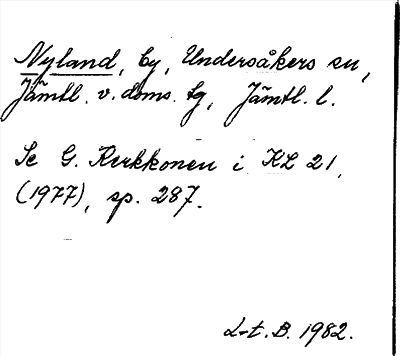 Nyland, by, Undersåkers sn,
Jämtl. v. doms. tg, Jämtl. l.
Se G. Kerkkonen i KL 21,
(1977), sp. 287.
L-t. B. 1982.